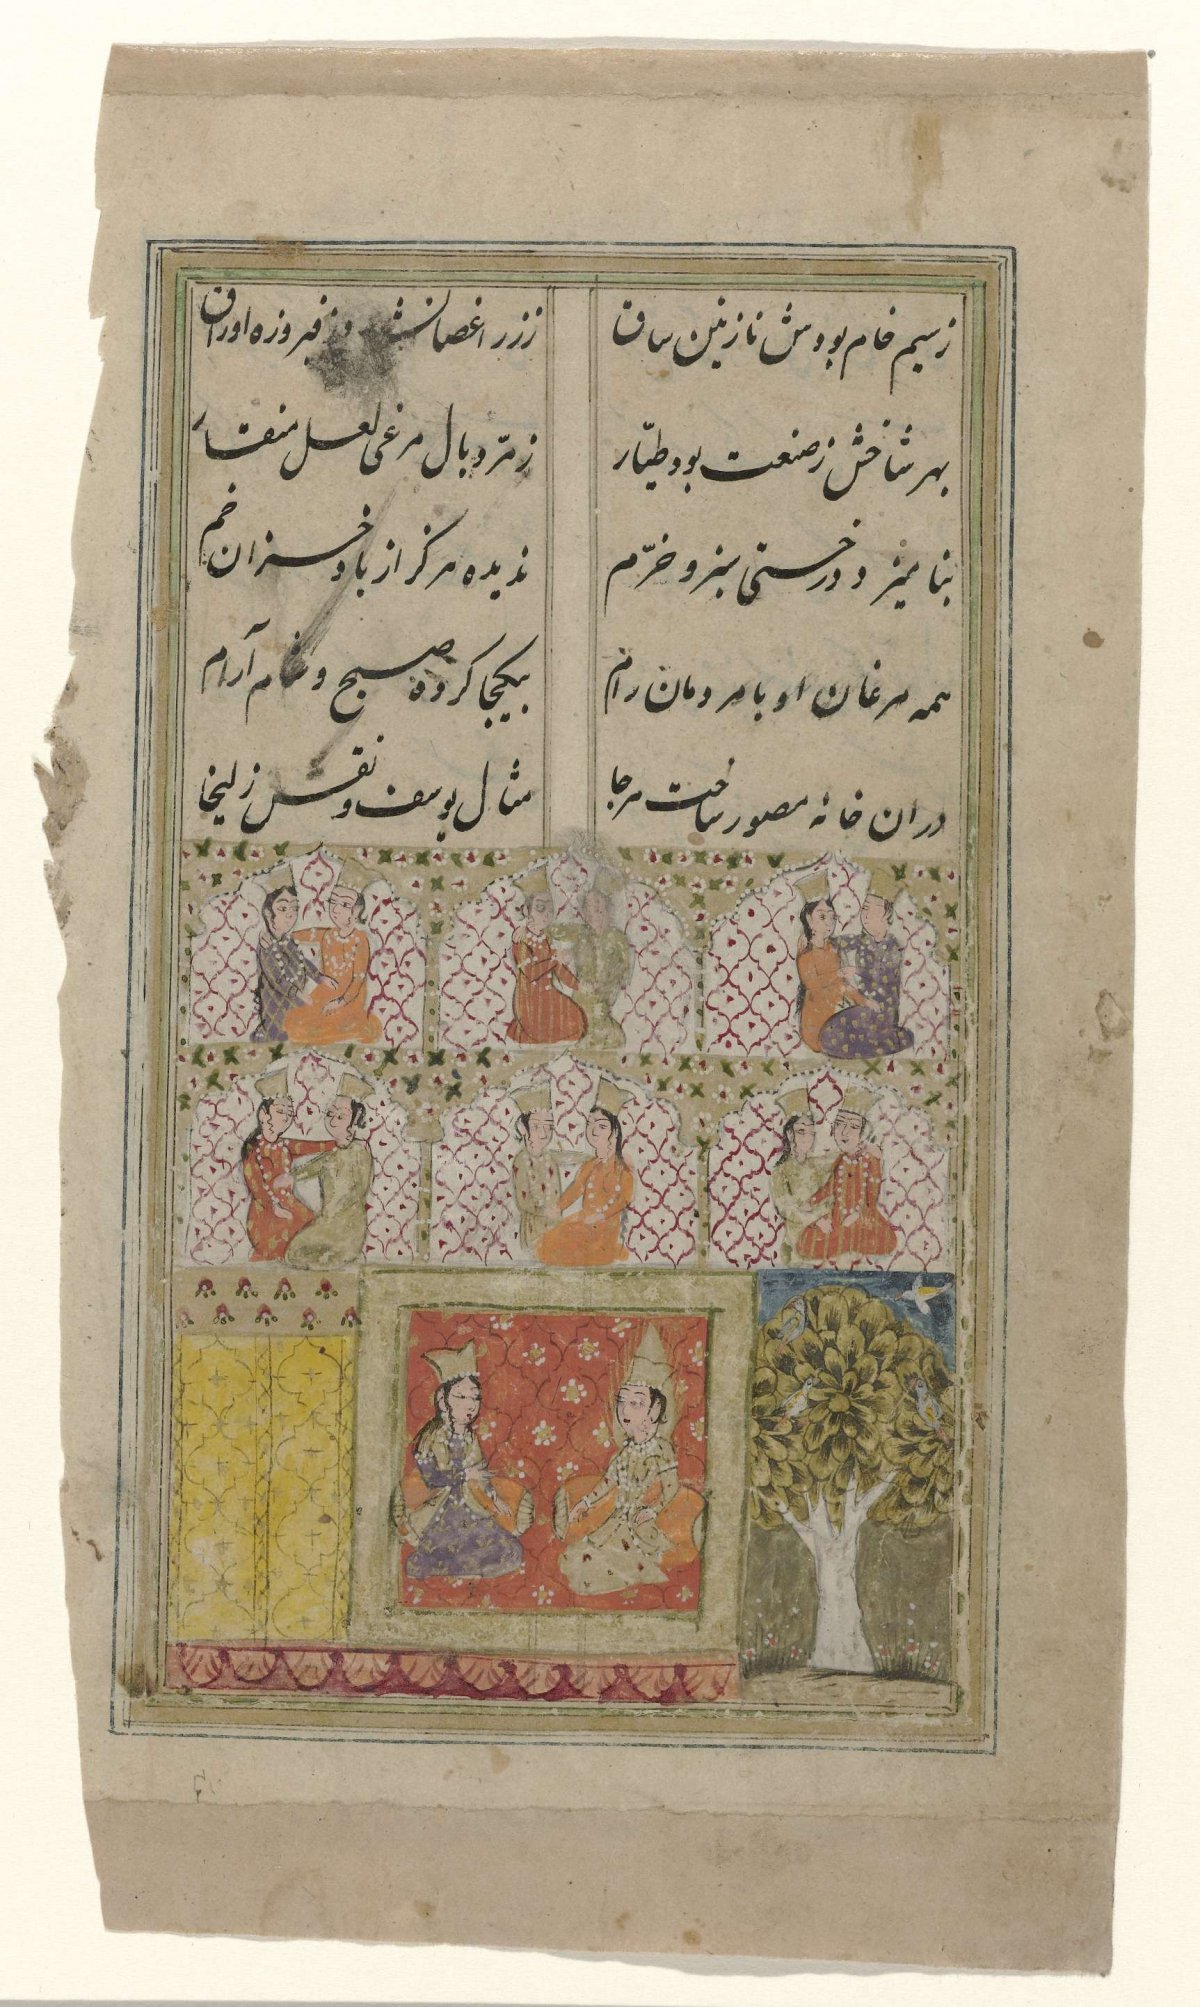 زسیم خام بودش نازنین ساق
ززر اغصانش وز فیروزه اوراق
بهر شاخش زصنعت بود طیّار
زمرّد بال مرغی لعل منقار
بنامیزد درختی سبز و خرّم
ندیده هرگز از باد خزان خم
همه مرغان او با مردمان رام
بیکجا کرده صبح و شام آرام
دران خانه مصور ساخت هرجا
مثال یوسف و نقش زلیخا